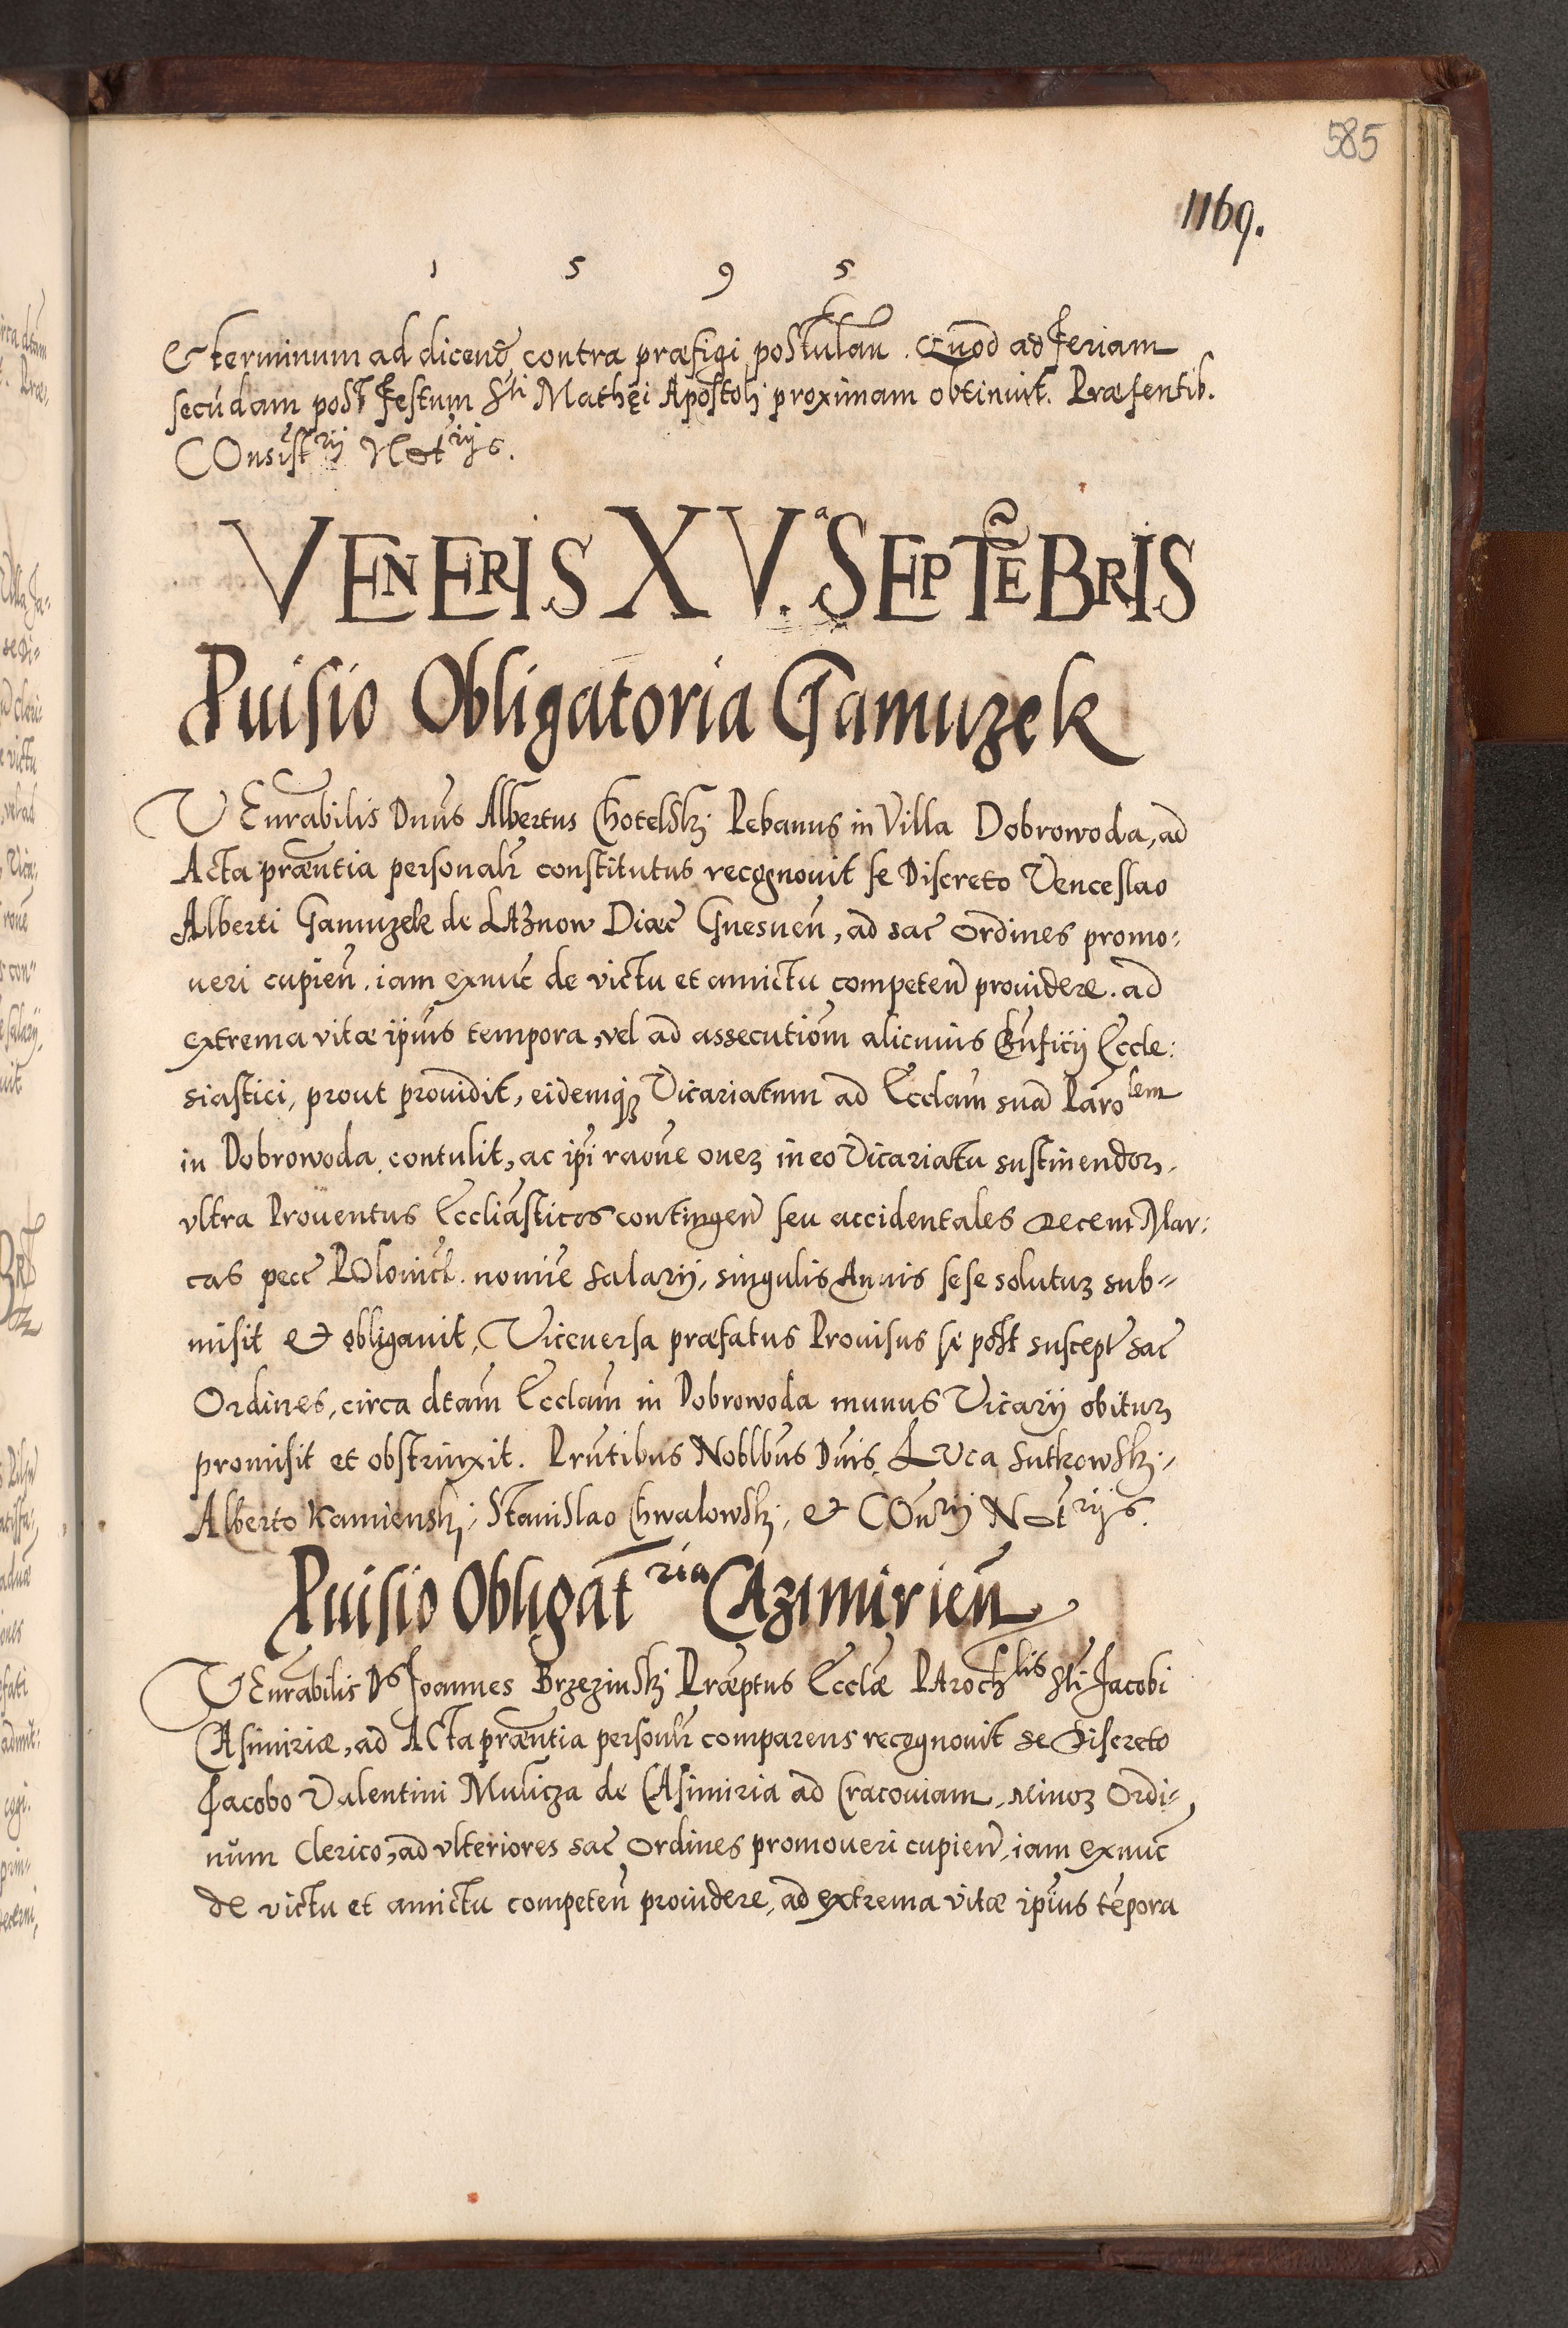 585
1169.
1 5 9 5
Et terminum ad dicend contra præfigi postulan. Quod ad Feriam
secūdam post Festum Sti Mathęi Apostoli proximam obtinuit. Præsentib.
COnsistrij Notrijs.
VENERIS XV.a SEPTẼBRIS
Puisio Obligatoria Gamuzek
VEnrabilis Dnūs Albertus Chotelskj Plebanus in Villa Dobrowoda, ad
Acta præntia personalr constitutus recognouit se Discreto Venceslao
Alberti Gamuzek de LAznow Diæc Gnesnen̄, ad sac Ordines promo:
ueri cupien̄. iam exnuc de victu et amictu competen̄ prouidere. ad
extrema vitæ ipīus tempora, vel ad assecutiom alicuius Bn̄ficij Eccle:
siastici, prout prouidit, eidemq3 Vicariatum ad Eccl̄am suā Parōlem
in Dobrowoda contulit, ac ipī raōne onez in eo Vicariatu sustinendoꝝ.
vltra Prouentus Eccliasticos contingen̄ seu accidentales Decem Mar:
cas pecc POlonicl. nomīe Salarij, singulis Annis sese soluturꝫ sub-
misit et obligauit, Viceuersa præfatus Prouisus se post suscept sac
Ordines, circa dtam Eccl̄am in Dobrowoda munus Vicarij obiturꝫ
promisit et obstrinxit. Prn̄tibus Noblbus Dnis. LUca Sutkowskj.
Alberto Kamienskj, Stanislao Chwalowskj, et COnrij Notrijs.
Puisio Obligatria CAzimirien̄
VEnrabilis Ds Joannes Brzezinskj Præptus Eccl̄æ PArochlis Sti Jacobi
CAsimiriæ, ad ACta præntia personlr comparens recognouit se Discreto
Jacobo Valentini Mulicza de CAsimiria ad Cracouiam, Minoꝝ Ordi-
nūm Clerico, ad vlteriores sac Ordines promoueri cupien̄, iam exnuc
de victu et amictu competen̄ prouidere, ad extrema vitæ ipīus tēpora